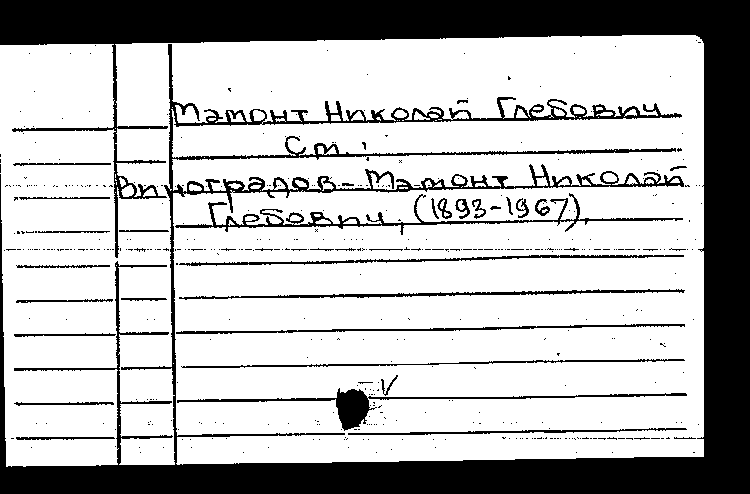 Мамонт Николай Глебович
См.:
Виноградов-Мамонт Николай
Глебович, (1893-1967).
V